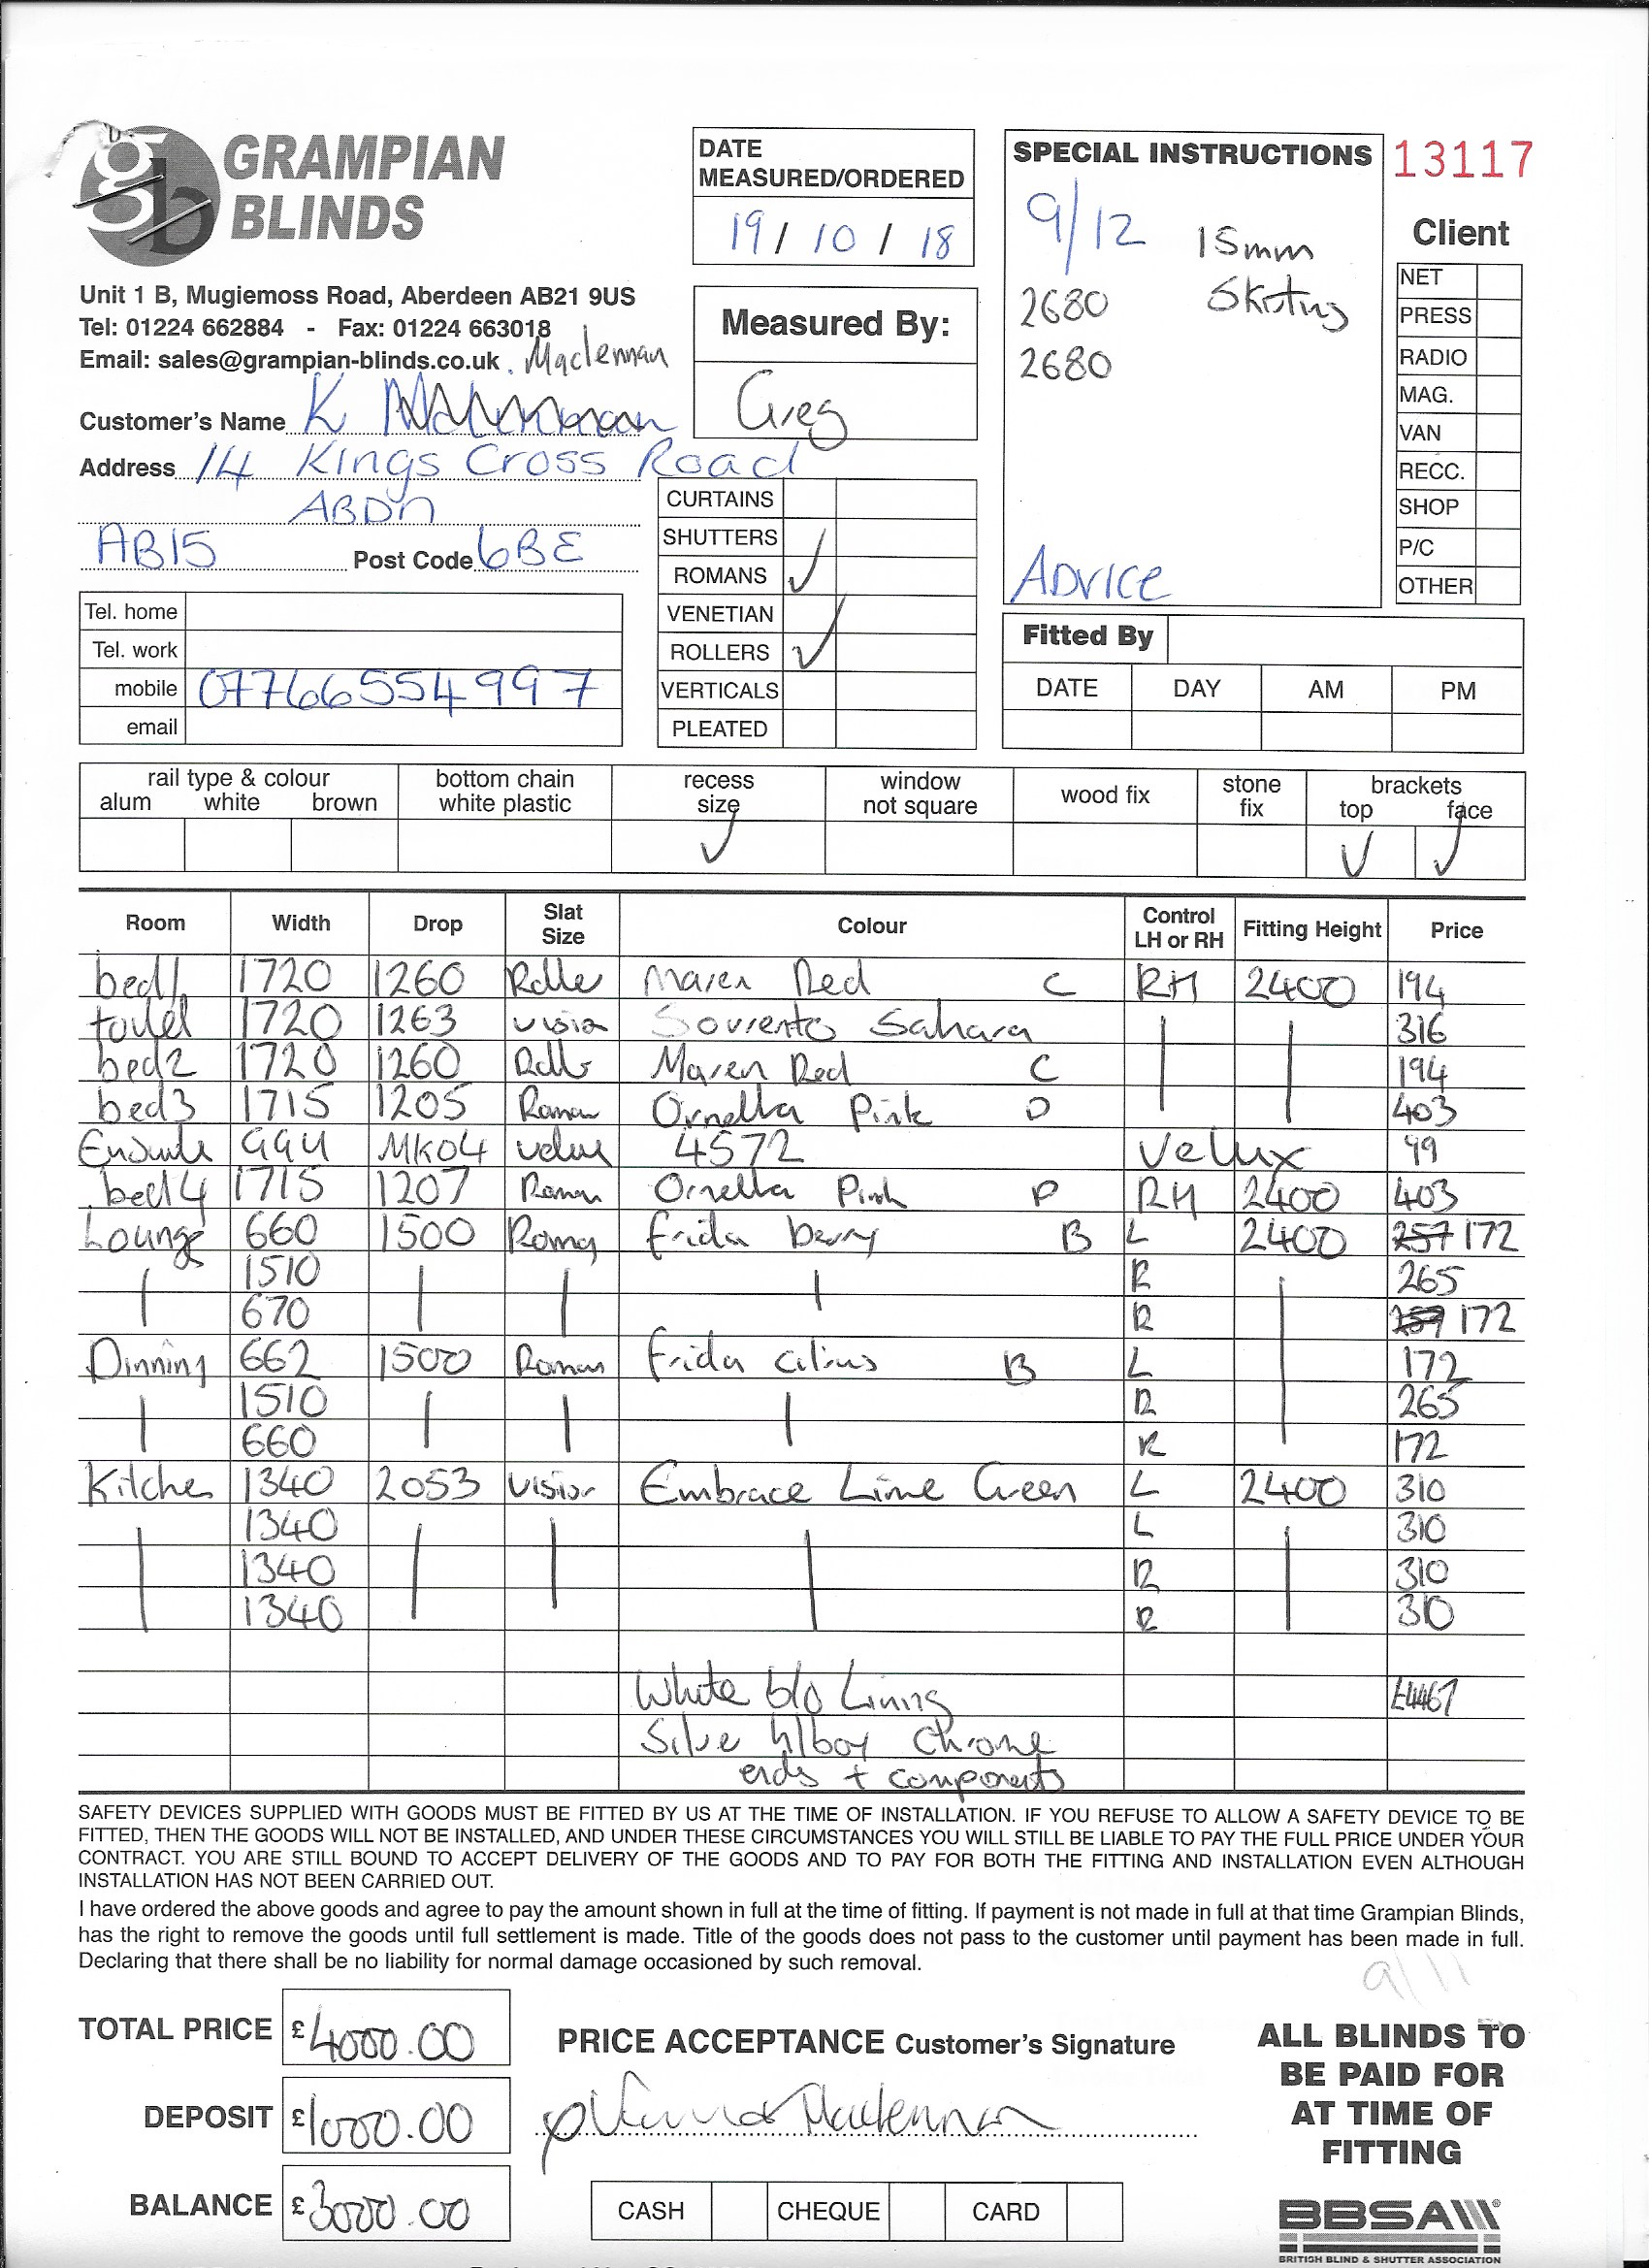 GRAMPIAN
BLINDS
Unit 1 B, Mugiemoss Road, Aberdeen AB21 9US
Tel: 01224 662884 - Fax: 01224 663018
Email: sales@grampian-blinds.co.uk
Maclennan
Customer's Name K
Address 14 Kings Cross Road
ABDN
AB15 Post Code 6BE
Tel. home
Tel. work
mobile 07766554997
email
DATE
MEASURED/ORDERED
19 / 10 / 18
Measured By:
Greg
CURTAINS
SHUTTERS
ROMANS ✓
VENETIAN
ROLLERS ✓
VERTICALS
PLEATED
SPECIAL INSTRUCTIONS
9/12 15mm
2680 Skirting
2680
ADVICE
13117
Client
NET
PRESS
RADIO
MAG.
VAN
RECC.
SHOP
P/C
OTHER
Fitted By
DATE DAY AM PM
rail type & colour bottom chain recess window wood fix stone brackets
alum white brown white plastic size not square fix top face
✓ ✓ ✓
Room Width Drop Slat Size Colour Control LH or RH Fitting Height Price
bed1 1720 1260 Roller Maren Red C RH 2400 194
toilet 1720 1263 vision Sorrento Sahara 316
bed2 1720 1260 Roller Maren Red C 194
bed3 1715 1205 Roman Ornella Pink 403
Ensuite GGU MK04 velux 4572 Velux 99
bed4 1715 1207 Roman Ornella Pink P RH 2400 403
Lounge 660 1500 Roman frida berry B L 2400 257 172
1510 R 265
670 R 172
Dinning 662 1500 Roman frida citrus B L 172
1510 R 265
660 R 172
Kitchen 1340 2053 vision Embrace Lime Green L 2400 310
1340 L 310
1340 R 310
1340 R 310
White b/o Lining £4467
Silve h/box Chrome
ends + components
SAFETY DEVICES SUPPLIED WITH GOODS MUST BE FITTED BY US AT THE TIME OF INSTALLATION. IF YOU REFUSE TO ALLOW A SAFETY DEVICE TO BE
FITTED, THEN THE GOODS WILL NOT BE INSTALLED, AND UNDER THESE CIRCUMSTANCES YOU WILL STILL BE LIABLE TO PAY THE FULL PRICE UNDER YOUR
CONTRACT. YOU ARE STILL BOUND TO ACCEPT DELIVERY OF THE GOODS AND TO PAY FOR BOTH THE FITTING AND INSTALLATION EVEN ALTHOUGH
INSTALLATION HAS NOT BEEN CARRIED OUT.
I have ordered the above goods and agree to pay the amount shown in full at the time of fitting. If payment is not made in full at that time Grampian Blinds,
has the right to remove the goods until full settlement is made. Title of the goods does not pass to the customer until payment has been made in full.
Declaring that there shall be no liability for normal damage occasioned by such removal.
9/11
TOTAL PRICE £4000.00
DEPOSIT £1000.00
BALANCE £3000.00
PRICE ACCEPTANCE Customer's Signature
Maclennan
CASH CHEQUE CARD
ALL BLINDS TO
BE PAID FOR
AT TIME OF
FITTING
BBSA
BRITISH BLIND & SHUTTER ASSOCIATION